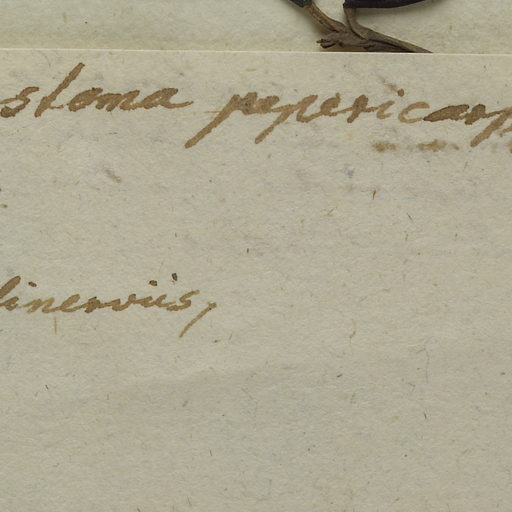 stoma pepericarp
linerviis,